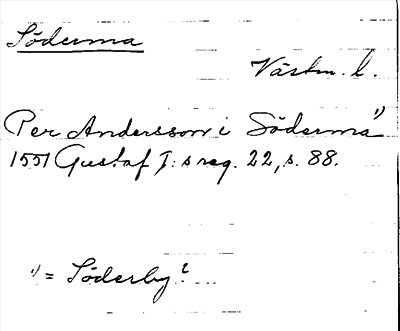 Söderma
Västm. l.
Per Andersson i Söderma¹⁾
1551 Gustaf I:s reg. 22, s. 88.
¹⁾ = Söderby?